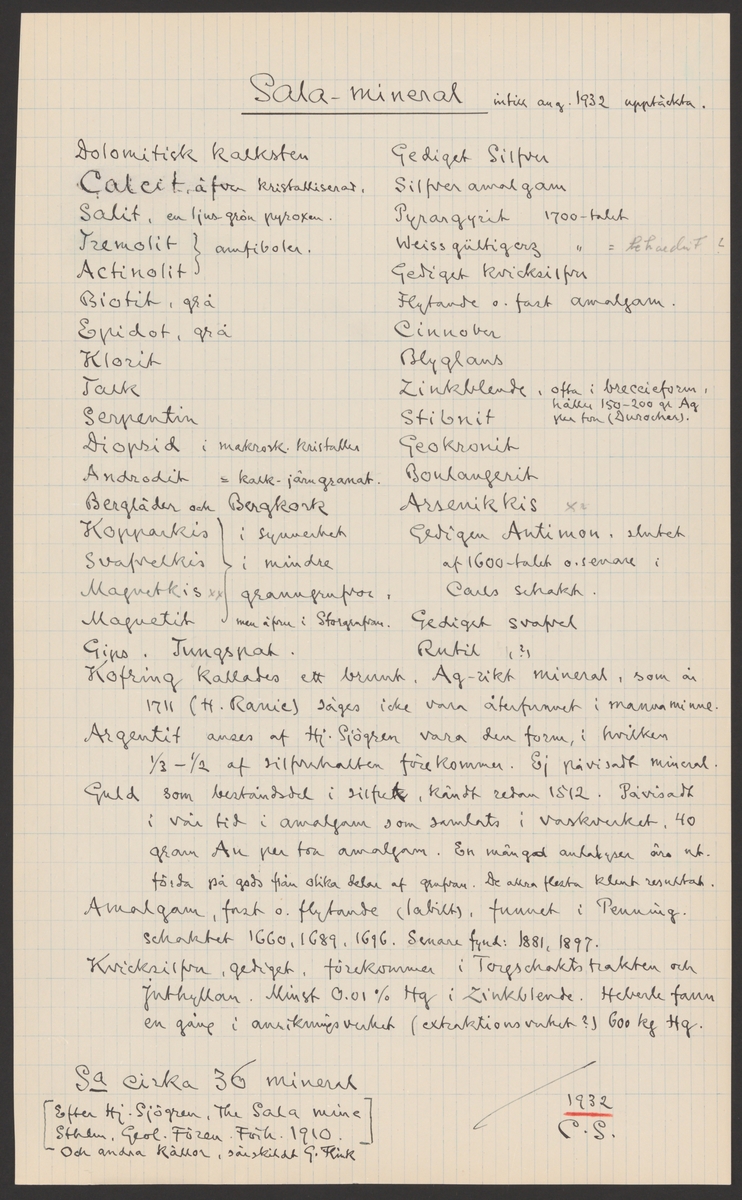 Sala-mineral intill aug. 1932 upptäckta.
Dolomitisk kalksten
Calcit, äfven kristalliserad.
Salit, en ljus-grön pyroxen.
Tremolit } amfiboler.
Actinolit
Biotit, grå
Epidot, grå
Klorit
Talk
Serpentin
Diopsid i makrosk. kristaller
Androdit = kalk-järngranat.
Bergläder och Bergkork
Kopparkis } i synnerhet
Svafvelkis i mindre
Magnetkis xx granngrufvor,
Magnetit men äfven i Storgrufvan.
Gips. Tungspat.
Gediget Silfver
Silfveramalgam
Pyrargyrit 1700-talet
Weissgültigerz " =
Gediget kvicksilfver
Flytande o. fast amalgam.
Cinnober
Blyglans
Zinkblende, ofta i breccieform,
håller 150-200 gr Ag
per ton (Durocher).
Stibnit
Geokronit
Boulangerit
Arsenikkis xx
Gedigen Antimon, slutet
af 1600-talet o. senare i
Carls schakt.
Gediget svafvel
Rutil (?)
Kofring kallades ett brunt, Ag-rikt mineral, som år
1711 (H. Ranie) säges icke vara återfunnet i mannaminne.
Argentit anses af Hj. Sjögren vara den form, i hvilken
1/3-1/2 af silfverhalten förekommer. Ej påvisadt mineral.
Guld som beståndsdel i silfret, kändt redan 1512. Påvisadt
i vår tid i amalgam som samlats i vaskverket, 40
gram Au per ton amalgam. En mängd analyser äro ut-
förda på gods från olika delar af grufvan. De allra flesta klent resultat.
Amalgam, fast o. flytande (labilt), funnet i Penning-
schaktet 1660, 1689, 1696. Senare fynd: 1881, 1897.
Kvicksilfver, gediget, förekommer i Torgschaktstrakten och
Juthyllan. Minst 0.01% Hg i Zinkblende. Heberle fann
en gång i anrikningsverket (extraktionsverket?) 600 kg Hg.
Sa cirka 36 mineral
[Efter Hj. Sjögren, The Sala mine
Sthlm, Geol. Fören. Förh. 1910.]
Och andra källor, särskildt G. Flink
1932
C.S.